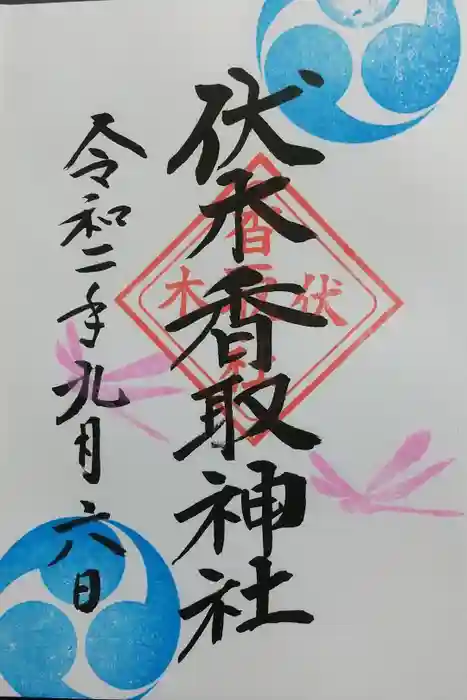 伏木香取神社
令和二年九月六日
伏木
香取
神社